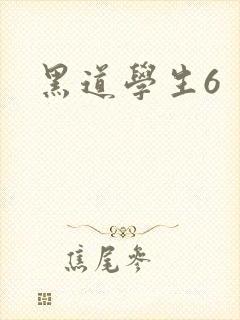 黑道學生6
焦尾參